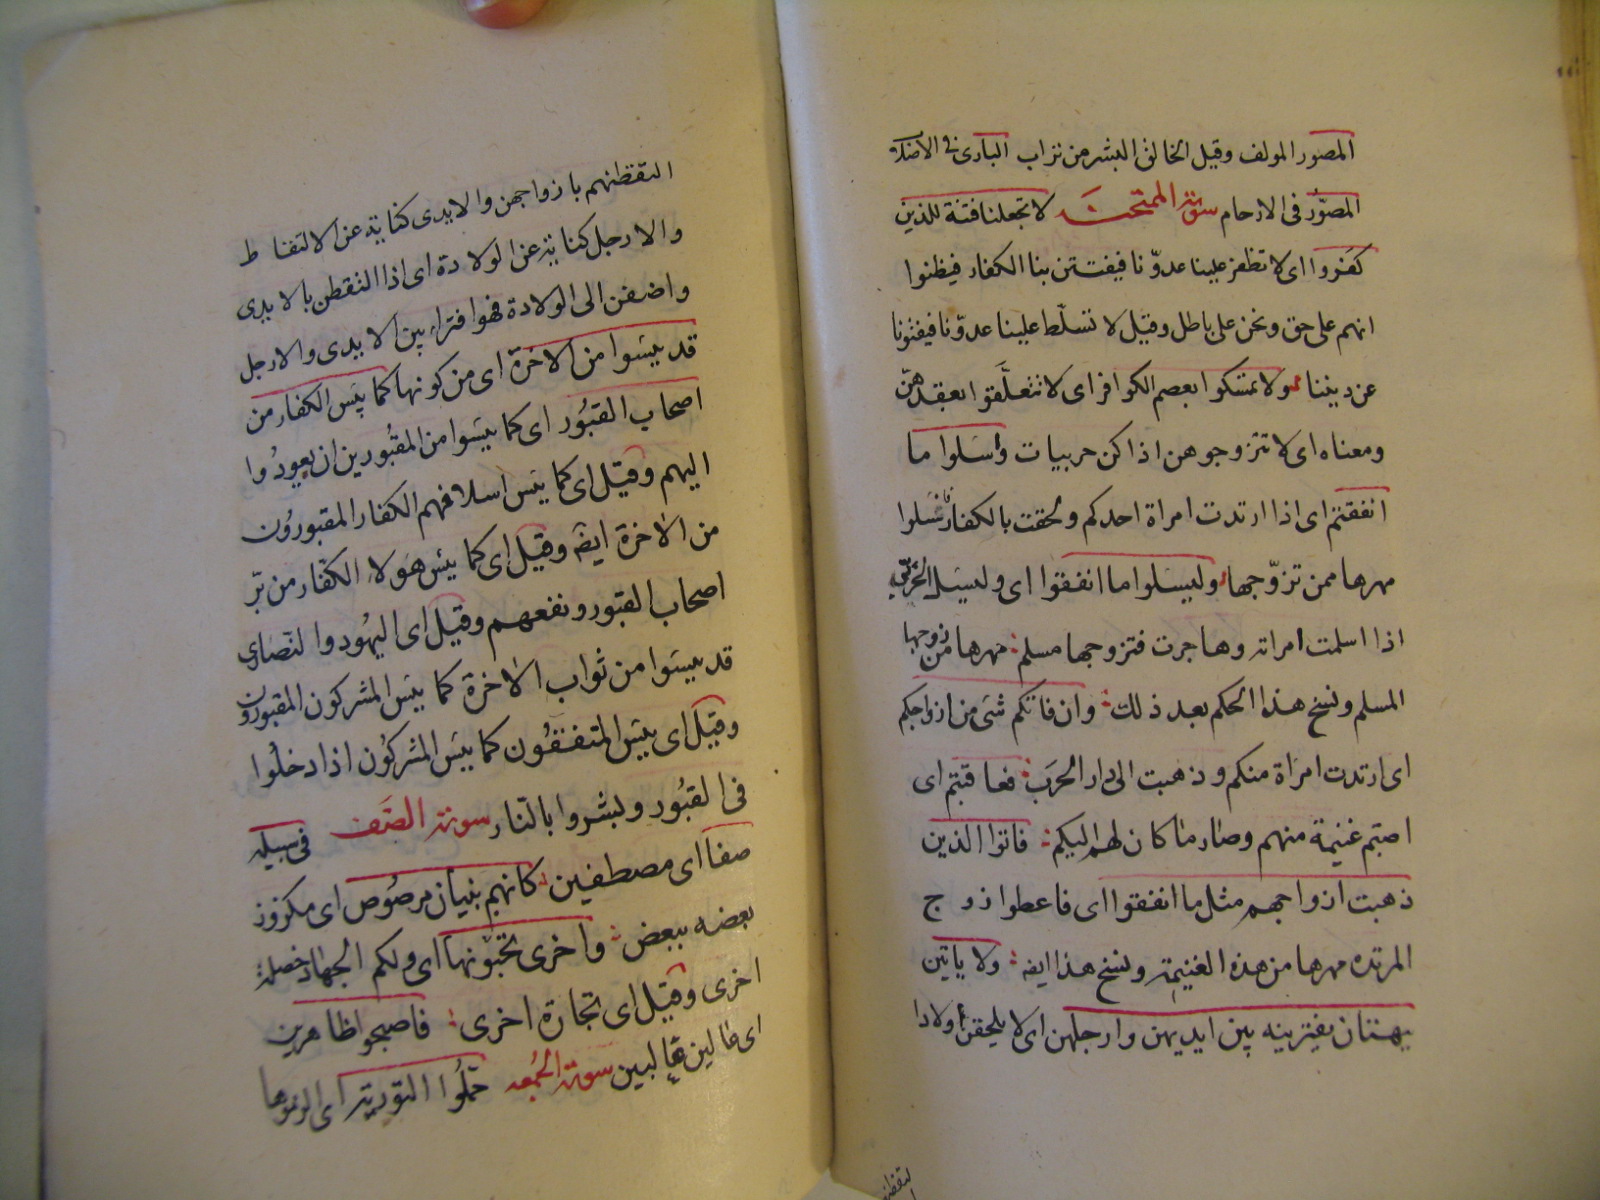 المصور المولف وقيل الخالق البشر من تراب البارئ في الاصلاب
المصوّر فى الارحام سورة الممتحنة لا تجعلنا فتنة للذين
كفروا اى لا تظفر علينا عدوّنا فيفتتن بنا الكفار فيظنوا
انهم على حق ونحن على باطل وقيل لا تسلّط علينا عدوّنا فيفتنونا
عن ديننا ولا تمسكوا بعصم الكوافر اى لا تتعلّقوا بعقدهنّ
ومعناه اى لا تتزوجوهن اذا كن حربيات واسلوا ما
انفقتم اى اذا ارتدت امراة احدكم ولحقت بالكفار فاسئلوا
مهرها ممن تزوّجها وليسلوا ما انفقوا اى وليسئل الحربىّ
اذا اسلمت امراته وهاجرت فتزوجها مسلم مهرها من زوجها
المسلم ونسخ هذا الحكم بعد ذلك وان فاتكم شئ من ازواجكم
اى ارتدت امراة منكم وذهبت الى دار الحرب فعاقبتم اى
اصبتم غنيمة منهم وصار ما كان لهم اليكم فاتوا الذين
ذهبت ازواجهم مثل ما انفقوا اى فاعطوا زوج
المرتده مهرها من هذه الغنيمة ونسخ هذا ايضه ولا ياتين
ببهتان يفترينه بين ايديهن وارجلهن اى لا يلحقن اولادا
التقطنهم بازواجهن والايدى كناية عن الالتقاط
والارجل كناية عن الولادة اى اذا التقطن بالايدى
واضفن الى الولادة فهو افتراء بين الايدى والارجل
قد يئسوا من الاخرة اى من كونها كما يئس الكفار من
اصحاب القبور اى كما يئسوا من المقبورين ان يعودوا
اليهم وقيل اى كما يئس اسلافهم الكفار المقبورون
من الاخرة ايضه وقيل اى كما يئس هولا الكفار من برّ
اصحاب القبور ونفعهم وقيل اى اليهود والنصارى
قد يئسوا من ثواب الاخرة كما يئس المشركون المقبورون
وقيل اى يئس المتفقون كما يئس المشركون اذا دخلوا
فى القبور وبشروا بالنار سورة الصف فى سبيله
صفا اى مصطفين كانهم بنيان مرصوص اى مكزوز
بعضه ببعض واخرى تحبونها اى ولكم الجهاد خصلة
اخرى وقيل اى تجارة اخرى فاصبحوا ظاهرين
اى عالين غالبين سورة الجمعه حمّلوا التورية اى الزموها